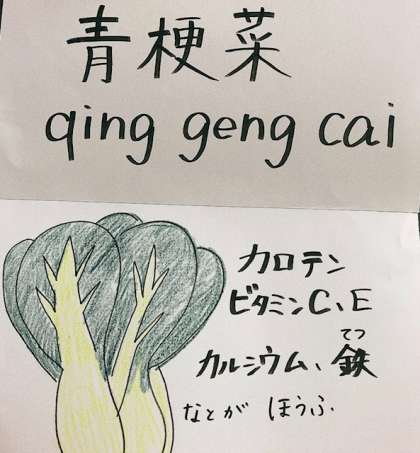 青梗菜
qing geng cai
カロテン
ビタミンC、E
カルシウム、鉄
てつ
などが ほうふ.